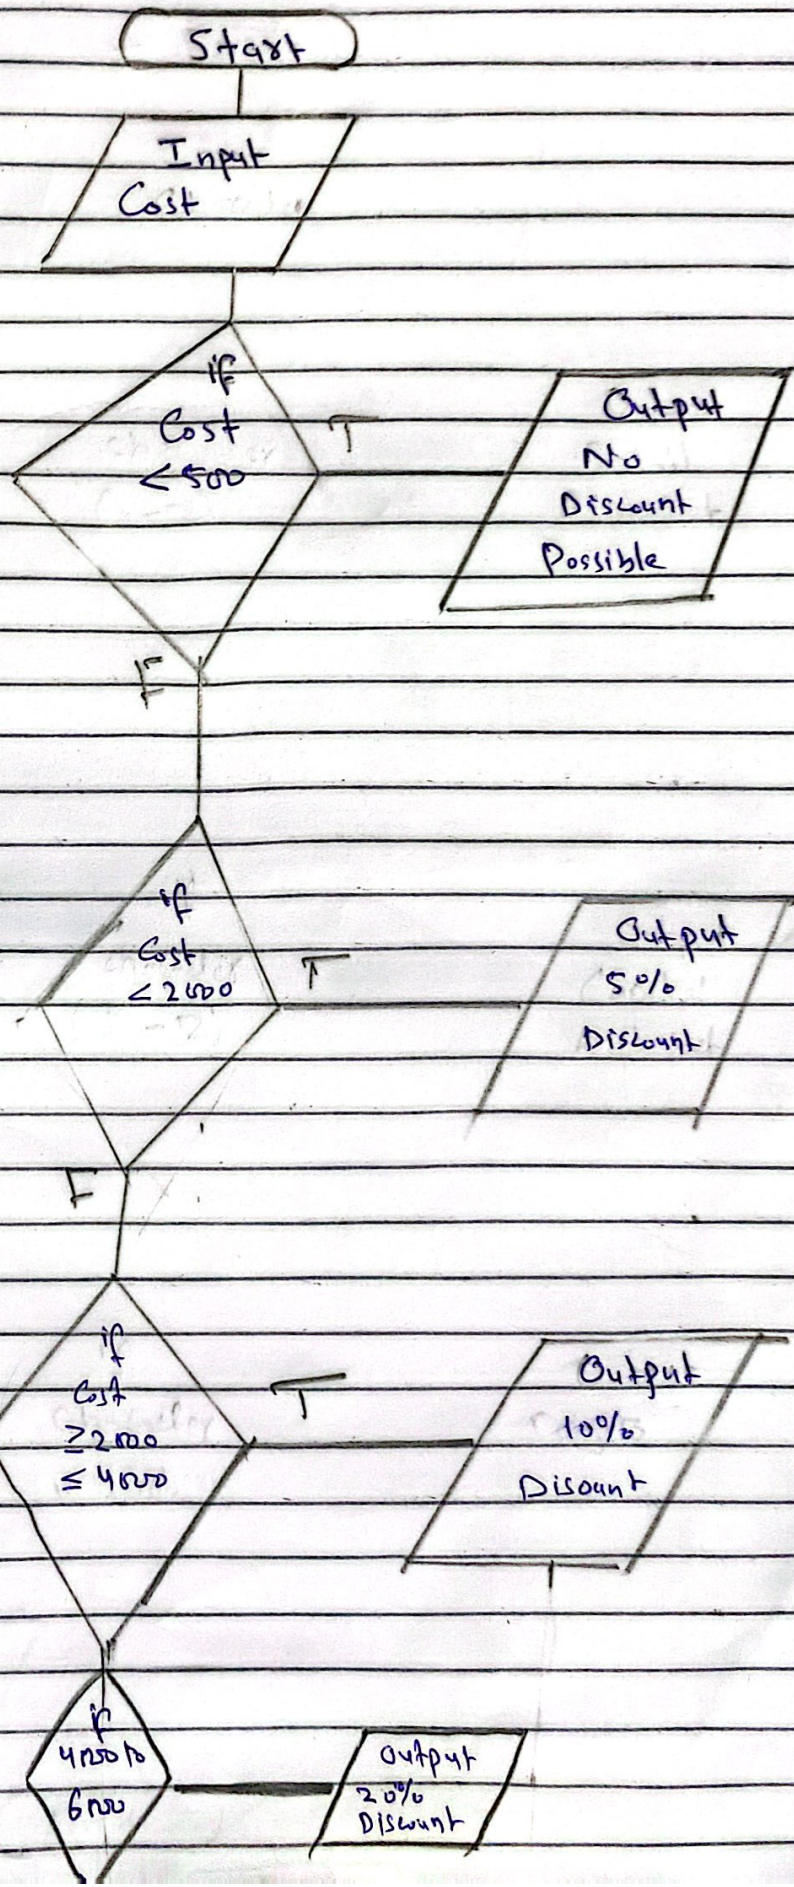 Start
Input
Cost
if
Cost
< 500
T
Output
No
Discount
Possible
F
if
Cost
< 2000
T
Output
5%
Discount
F
if
Cost
≥2000
≤ 4000
T
Output
10%
Disount
if
4000 to
6000
Output
20%
Discount